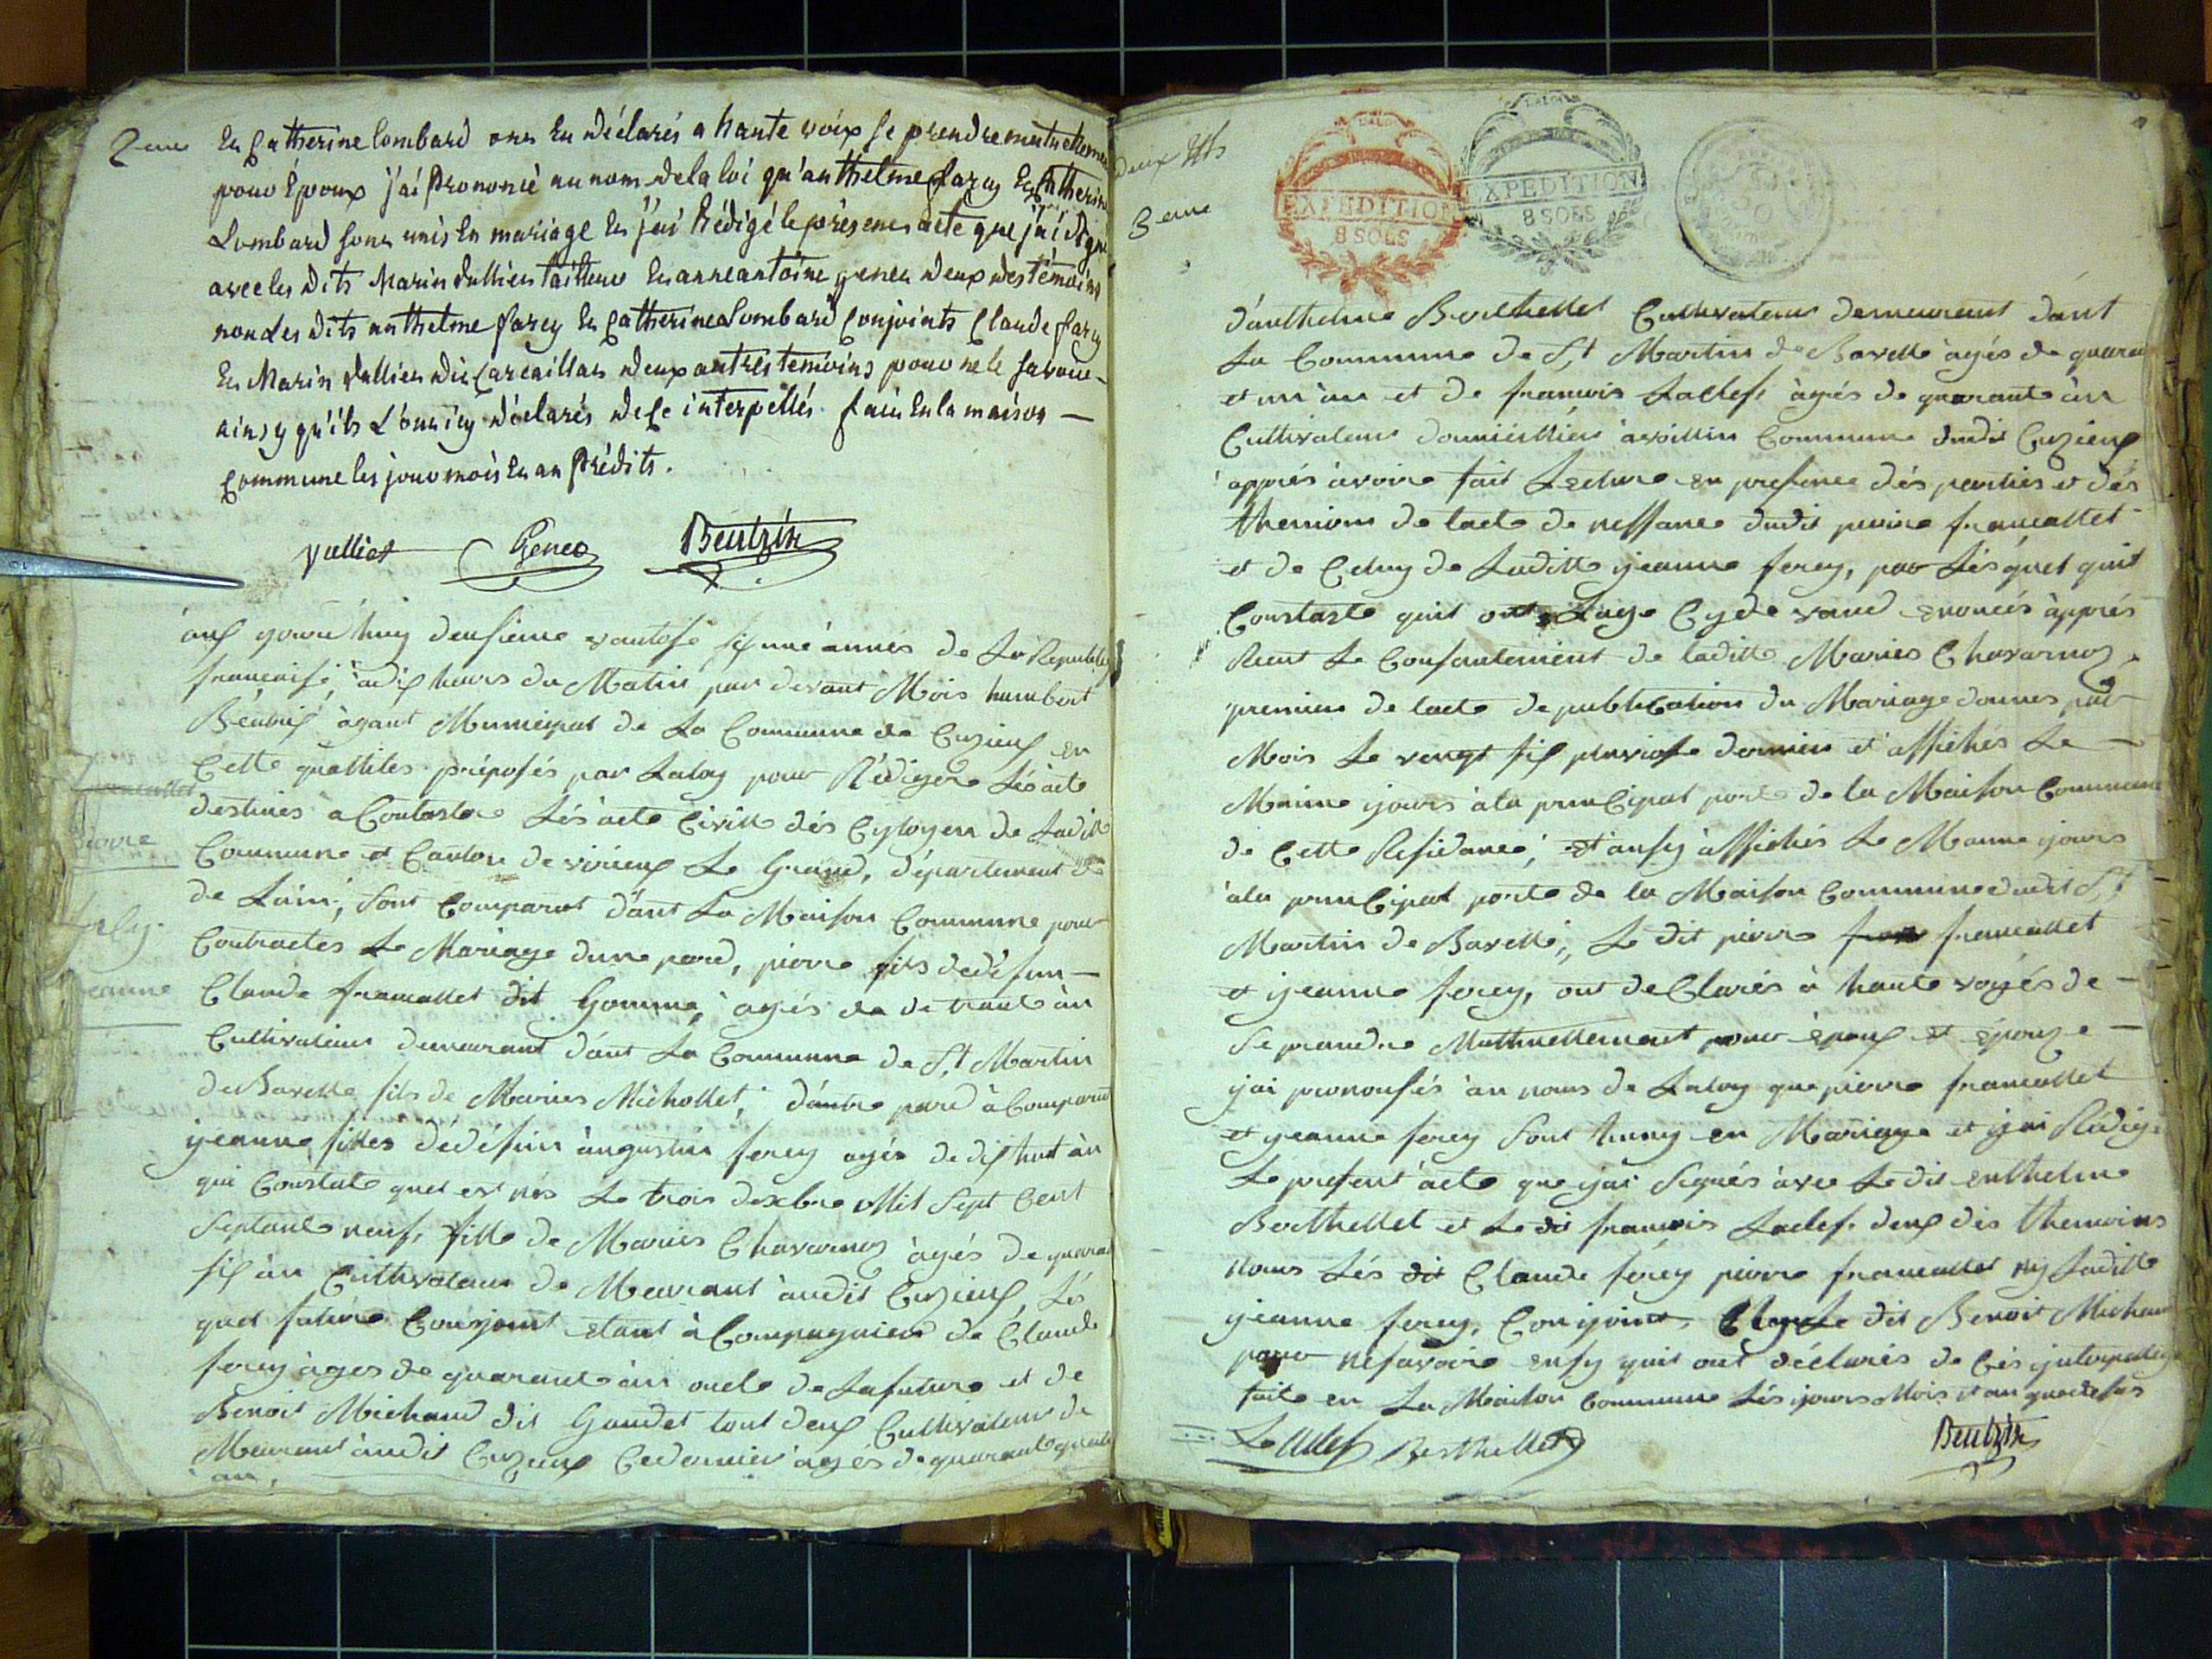 2eme
Et Catherine Lombard ont Et déclarés a haute voix se prendre mutuellemen
pour Epoux j'ai Prononcé au nom de la loi qu'anthelme farcy Et Catherine
Lombard sont unis En mariage Et j'ai Rédigé le présent acte que j'ai signé
avec les dits Marin Vullier tailleur Et anneantoine genet deux des témoins
non Les dits anthelme farcy Et Catherine Lombard Conjoints Claude farcy
Et Marin Vullier dit Carcaillat deux autres temoins pour ne le savoir
ainsy qu'ils L'ont icy déclarés de ce interpellés. fait En la maison
Commune les jour mois Et an Prédits.
Vulliet Genet Beutrix
francallet
pierre
ferley
jeanne
aux gourd'huy deusieme vantose sixme annés de La Republiq
francaise, à dix heurs du Matin par devant Mois humbert
Béutrix àgant Municipal de La Commune de Cuzieux en
Cette quallites préposés par Laloy pour Rédigere Lés acte
destinés a Contaster Lés acte Civille dés Cytoyen de Laditte
Commune et Canton de virieux Le Grand, département de
de Lain, sont Comparut dant La Maison Commune pour
Contracter Le Mariage dune pard, pierre fils dedéfun
Claude francallet dit Gomme, agés de de trante àn
Cultivateur demurant dant La Commune de St Martin
de Bavelle fils de Maries Michollet, dautre pard à Comparut
yeanne filles dédéfun àngustin ferey agés de dixhuit àn
qui Constate quel est nés Le trois dexbre Mil Sept Cent
Septante neuf, fille de Maries Chavarnoz àgés de quarant
six àn Cultivateur de Meurant àudit Cuzieux, Lés
quel future Conjoint etant à Compagnies de Claude
ferey àges de quarante àn oncle de Lafuture et de
Benoit Michaud dit Gaudet tout deux Cultivateur de
Meurant àudit Cuzieux Cedernier agés de quarante quatre
an,
deux
3eme
EXPEDITION
8 SOLS
EXPEDITION
8 SOLS
d'anthelme Berthellet Cultivateur demeurant dant
La Commune de St Martin de Bavelle àgés de quaran
et un àn et de francois Laclef, àgés de quarante àn
Cultivateur domicillier àvoillin Commune dudit Cuzieux
apprés àvoire fait Lecture en presance dés parties et dés
themions de lacte de nessance dudit peirre francallet
et de Celuy de Laditte yeanne ferey, par Lésquel quil
Constaste quil ont Lage Cy de vand enoncés àpprés
Recut Le Consantement de laditte Maries Chavarnoz
premier de lacte de publication du Mariage donnes par
Mois Le vengt six pluviose dernier et affichés Le
Maime yours àla principal porte de la Maison Commune
de Cette Residance, et ansy àffichés Le Mamme yours
àla principal porte de la Maison Commune dudit St
Martin de Bavelle, Le dit pierre francallet
et yeanne ferey, ont déClarés à haute voyés de
Seprandre Muthuellement pour époux et épouze
yai pronousés àn nous de Laloy que pierre francallet
et yeanne ferey Sont huny en Mariage et yai Rédigé
Le present àcte que yai Signés àvec Le dit enthelme
Berthellet et Le dit francois Laclef, deux dés themoins
nous Lés dit Claude ferey peirre francallet ny Laditte
yeanne ferey, Conyoint, Le dit Benoit Michau
pour nésavoire ensy quil ont déclarés de Cés ynterpelles
faite en La Maison Commune Lés yours Mois et an quedesus
Laclef Berthellet Beutrix